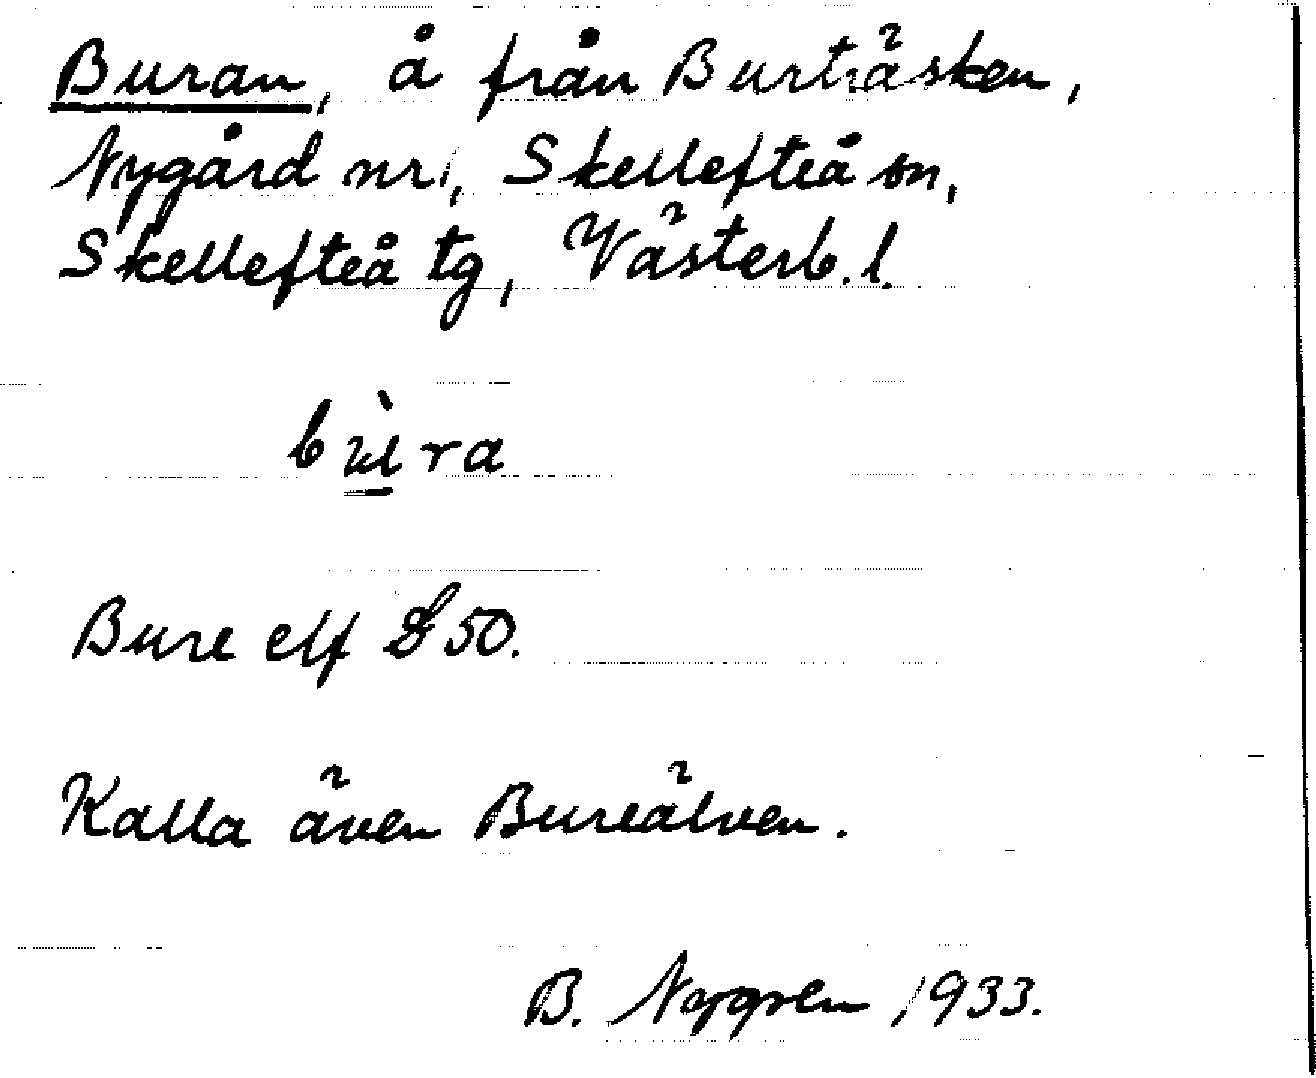 Buran, å från Burträsken,
Nygård nr 1, Skellefteå sn,
Skellefteå tg, Västerb. l.
bùra
Bure elf 50.
Kalla även Bureälven.
B. Nygren 1933.